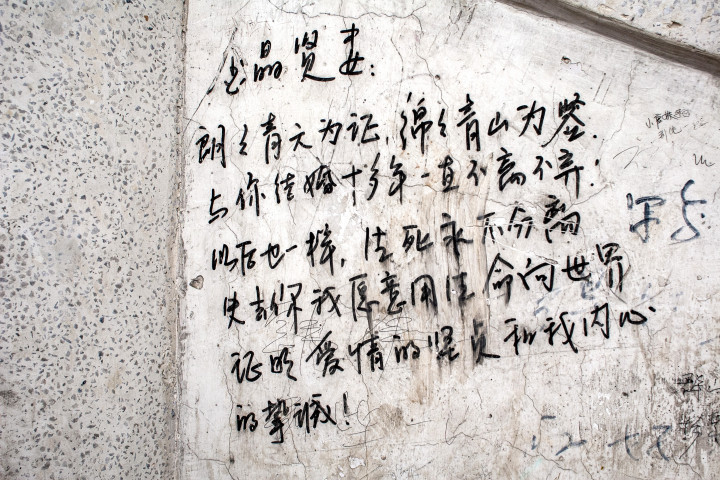 晶贤妻：
朗々青天为证，绵々青山为鉴．
与你结婚十多年一直不离不弃！
以后也一样，生死永不分离
失去你我愿意用生命向世界
证明爱情的坚贞和我内心
的挚诚！